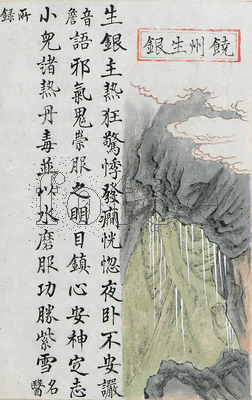 饒州生銀
生銀主熱狂驚悸發癇恍惚夜卧不安讝
音詹語邪氣鬼祟服之明目鎮心安神定志
小兒諸熱丹毒並以水磨服功勝紫雪名醫
所録